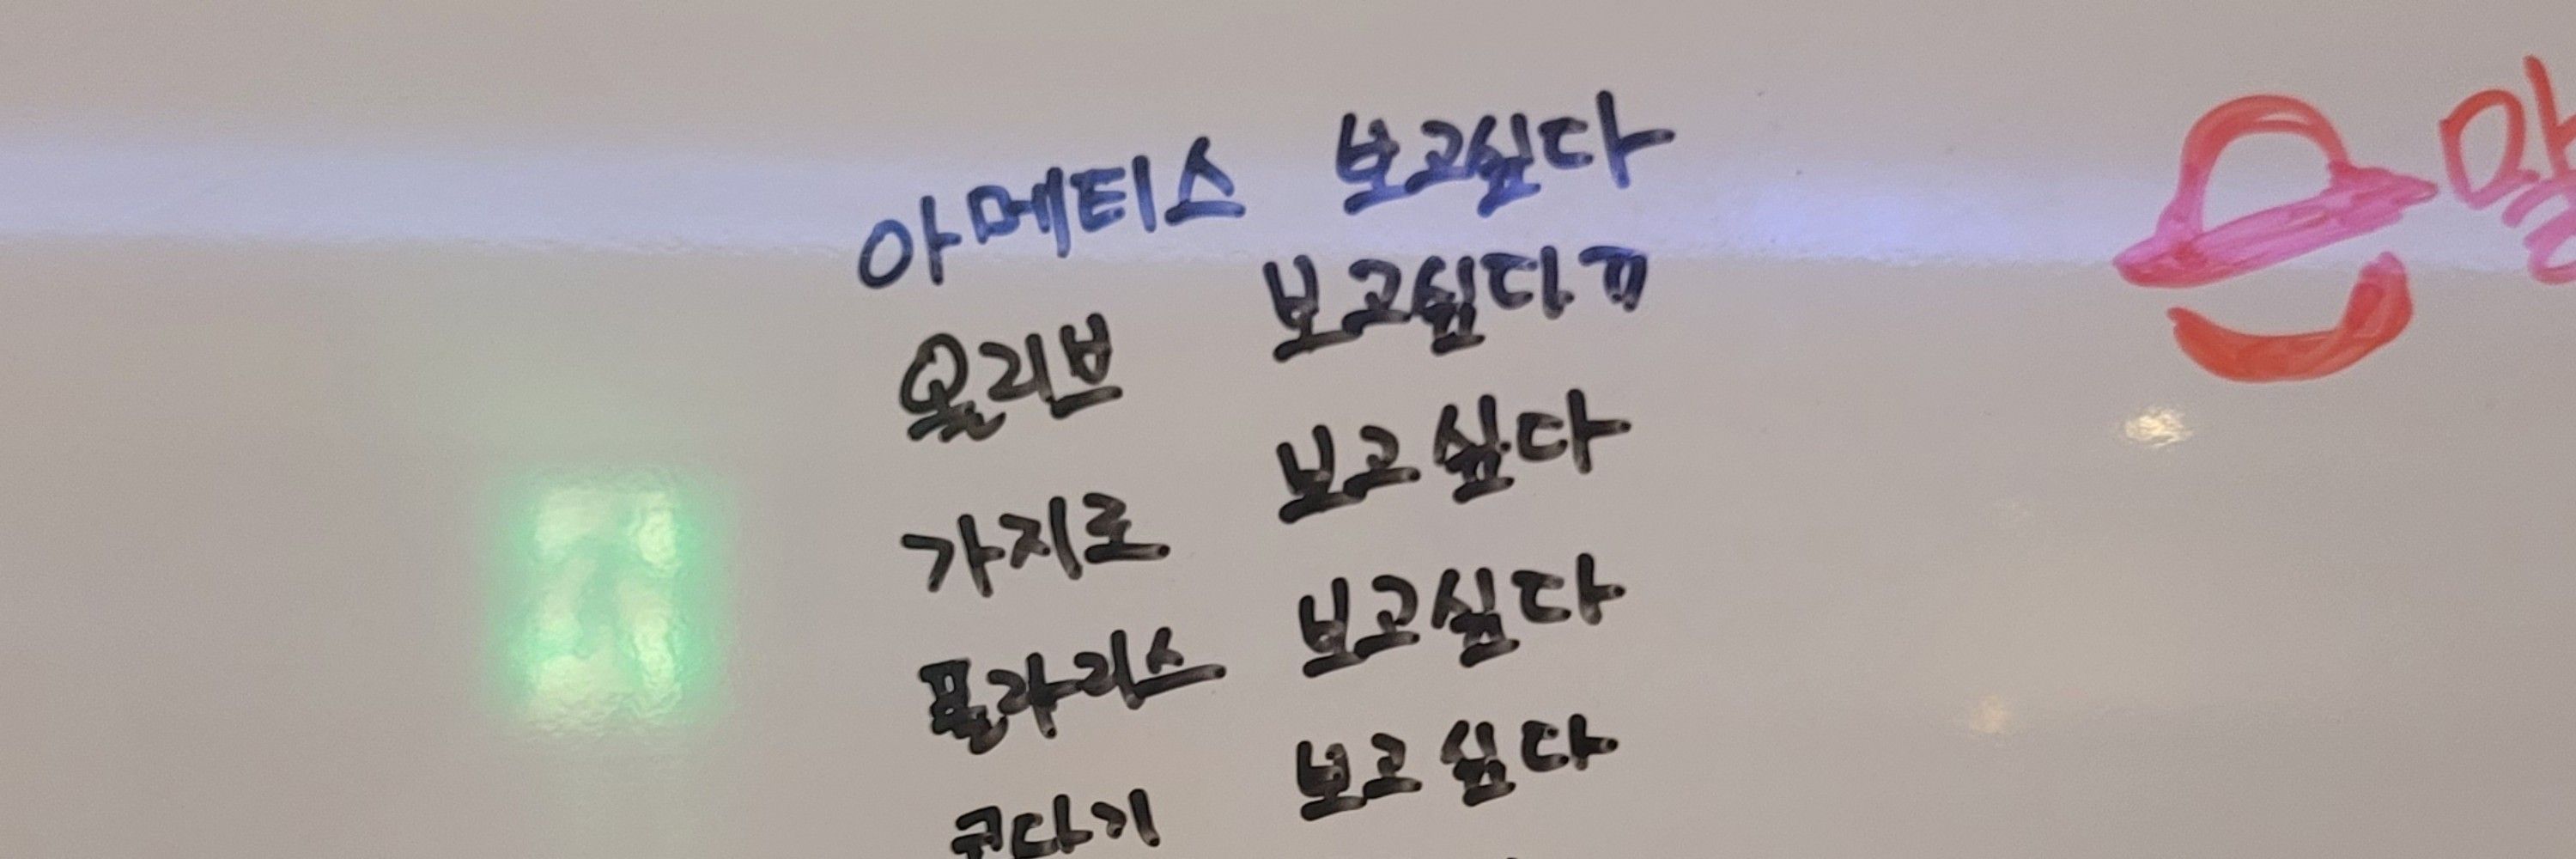 아메티스 보고싶다
올리브 보고싶다ㄲ
가지로 보고싶다
플라리스 보고싶다
코다기 보고싶다